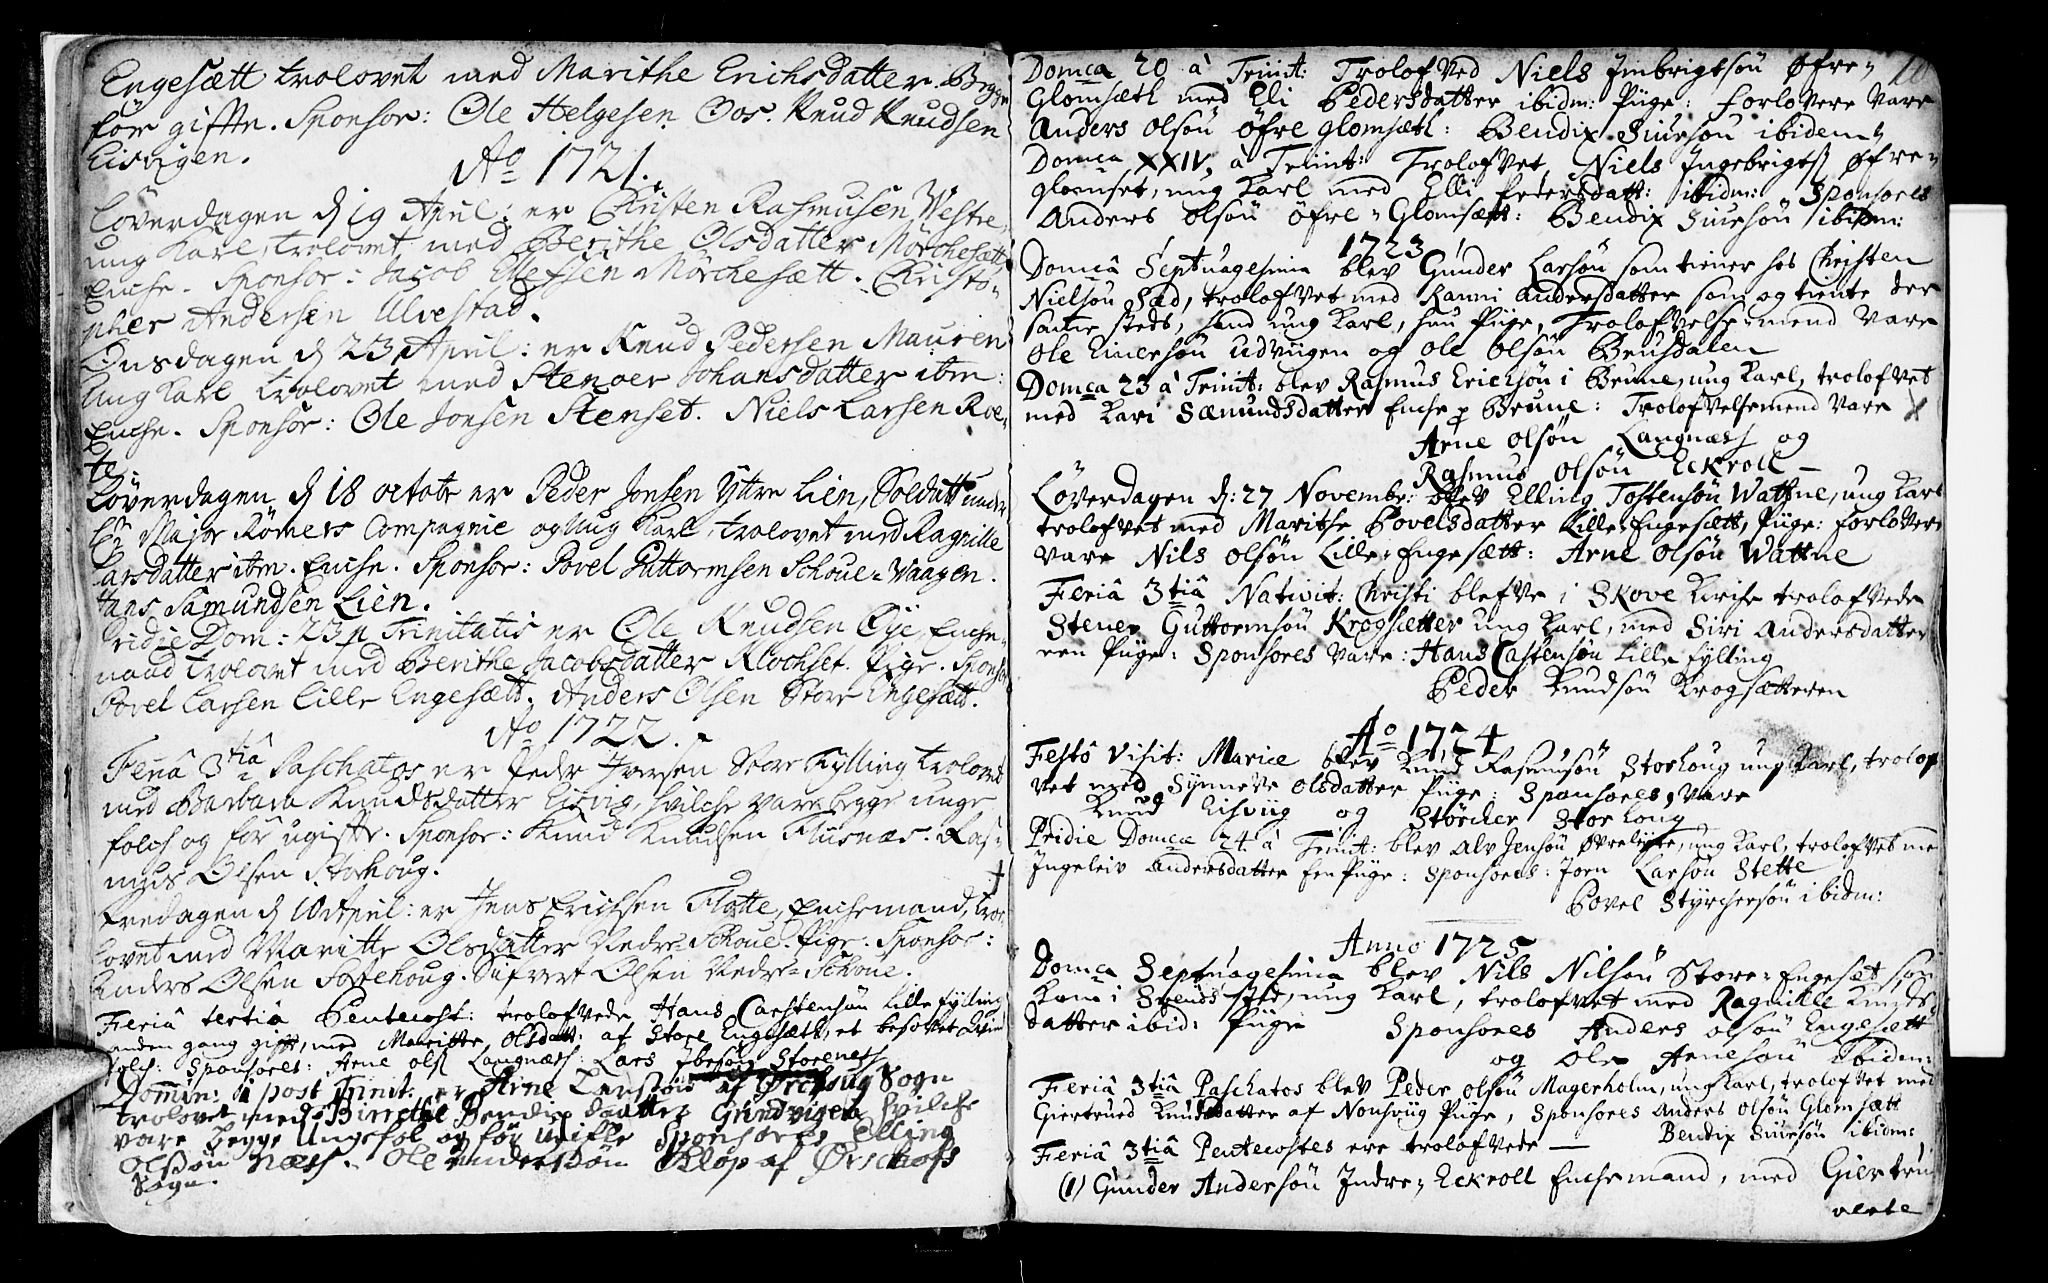 Engesætt trolovet med Marithe Erichsdatter. Begge
för giftte. Sponsor: Ole Helgesen Oos. Knud Knudsen
Eisvigen.
Ao 1721.
Löverdagen d 19 April: er Christen Rasmusen Vestre,
ung Karl, trolovet med Berithe Olsdatter Mörchesætt,
Enche. Sponsor: Jacob Ellefsen Mörchesætt. Christo-
pher Andersen Ulvestad.
Onsdagen d 23 April: er Knud Pedersen Mauren
Ung Karl trolovet med Stenoer Johansdatter ibm:
Enche. Sponsor: Ole Jonsen Stenset. Niels Larsen Roe-
te
Löverdagen d 18 octobr er Peder Jonsen Yttre Lien, Soldatt under
Hr Major Römers Compagnie og Ung Karl, trolovet med Ragnille
Larsdatter ibm. Enche. Sponsor: Povel Guttormsen Schoue=Vaagen.
Hans Samundsen Lien.
Pridie Dom: 23 p Trinitatis er Ole Knudsen Öje, Enche-
mand trolovet med Berithe Jacobsdatter Klochset. Pige. Sponsor
Povel Larsen Lille Engesætt. Anders Olsen Store Engesætt.
Ao 1722.
Feriâ 3tiâ Paschatos er Peder Iversen Store Fylling trolovet
med Barbara Knudsdatter Eisvig, hvilche vare begge unge
folch og för ugifte. Sponsor: Knud Knudsen Flusnæs. Ras-
mus Olsen Storhoug.
Fredagen d 10 April: er Jens Erichsen Flotte, Enchemand, tro-
lovet med Maritte Olsdatter Nedre=Schoue. Pige. Sponsor:
Anders Olsen Toftehoug. Sifvert Olsen Nedre=Schoue.
Feriâ tertiâ Pentecost: trolofvede Hans Carstensön Lille Fylling
anden gang gift, med Maritte Olsdatt: af Store Engesætt, et besofvet Qvind
folch: Sponsores: Arne Olss Langnæss: Lars Storeness
Domin: 1 post Trinit. er Arne Larssön af Örschoug Sogn
trolovet med Birrethe Bendix daatter Grindvigen hvilche
vare begge Ungefol og för Ugifte Sponsores Elling
Olssön Næss. Ole Anderssön Kløp af Ørschofs
Sogn.
Domca 20 à Trinit: Trolofved Niels Imbrigtsön Øfre=
Glomsæth med Eli Pedersdatter ibidm: Piige: Forlovere vare
Anders Olsön öfre glomsæth: Bendix Siursön ibidem
Domca XXIV, à Trinit: Trolofvet Niels Ingebrigtss Øfre=
glomset, ung Karl med Elli Pedersdatt: ibidm: Sponsores
Anders Olsön öfre=Glomsætt: Bendix Siursön ibidm:
1723
Domcâ Septuagesima blev Gunder Larsön som tiener hos Christen
Nielsön Sæd, trolofvet med Ranni Andersdatter som og tiente der
samme steds, hand ung Karl, hun Piige, Trolofvelsemend vare
Ole Einersön Udviigen og Ole Olsön Brusdalen
Domca 23 à Trinit: blev Rasmus Ericksön i Brune, ung Karl, trolofvet
med Kari Sæmundsdatter Enche p Brune: Trolofvelsemend vare
Arne Olsön Langnæss og
Rasmus Olsön Eckroll
Löverdagen d: 27 Novembr: blev Elling Tostensön Wattne, ung Karl
trolofvet med Marithe Povelsdatter Lille=Engesætt, Piige: Forlovere
vare Nils Olsön Lille=Engesætt: Arne Olsön Wattne
Feriâ 3tiâ Nativit: Christi blefve i Skove Kirche trolofvede
Stener Guttormsön Krogsætter ung Karl, med Siri Andersdatter
een Piige: Sponsores vare: Hans Castensön Lille fylling
Peder Knudsön Krogsætteren
Ao 1724
Festô Visit: Mariæ blev Knud Rasmusön Storhoug ung Karl, trolof
vet med Synneve Olsdatter Piige: Sponsores, vare
Knud Eisviig og Störcher Storhoug
Pridie Domca 24 à Trinit: blev Alv Jensön Øvrelyche, ung Karl, trolofvet me
Ingeleiv Andersdatter Een Piige: Sponsores: Joen Larsön Stette
Povel Styrchersön ibidm:
Anno 1725
Domca Septuagesima blev Nils Nilsön Store=Engeset, son
Kom i Svends sted, ung Karl, trolofvet med Ragnille Knuds
datter ibid: Piige Sponsores Anders Olsön Engesætt
og Ole Arnesön ibidm:
Feriâ 3tiâ Paschatos blev Peder Olsön Magerholm, ung Karl, trolofvet med
Giertrued Knudsdatter af Nonsviig Piige, Sponsores Anders Olsön Glomsætt
Bendix Siursön ibidm:
Feriâ 3tiâ Pentecostes ere trolofvede
(1) Gunder Andersön Indre=Eckroll Enchemand, med Giertru
verte